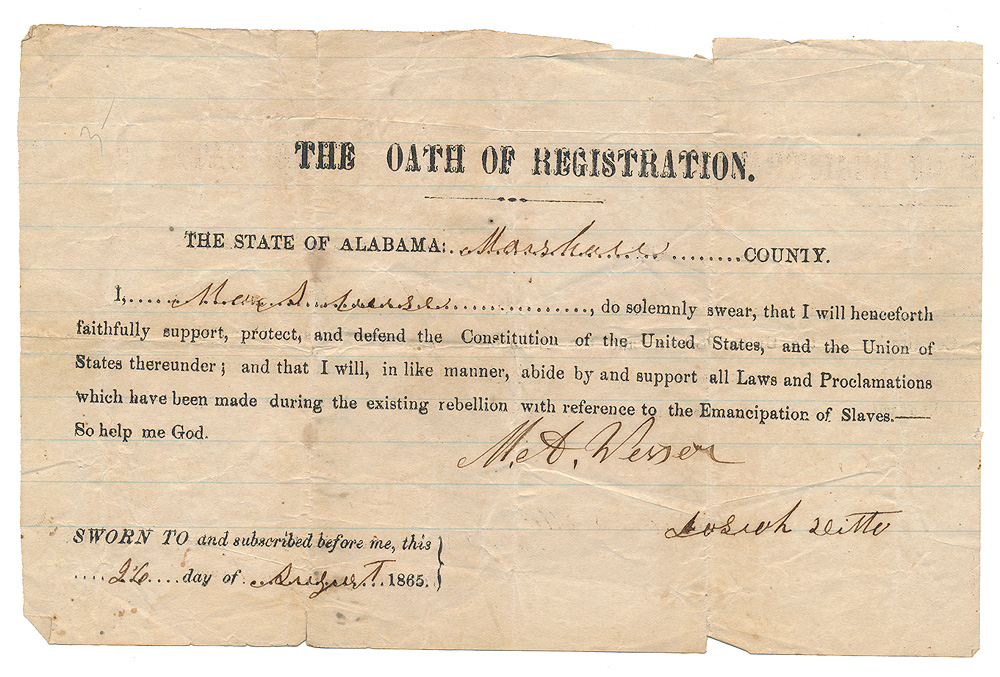 THE OATH OF REGISTRATION.
THE STATE OF ALABAMA: Marshall COUNTY.
I, M. A., do solemnly swear, that I will henceforth
faithfully support, protect, and defend the Constitution of the United States, and the Union of
States thereunder; and that I will, in like manner, abide by and support all Laws and Proclamations
which have been made during the existing rebellion with reference to the Emancipation of Slaves.—
So help me God.
M. A.
Josiah
SWORN TO and subscribed before me, this
26 day of August 1865.